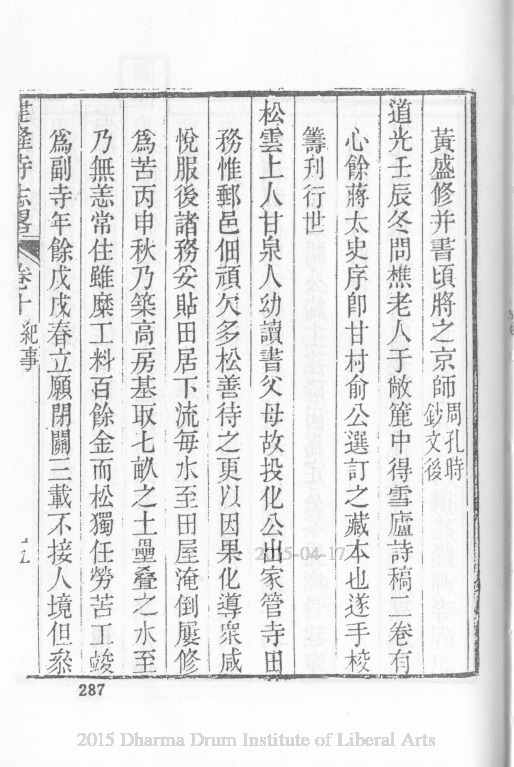 黃盛修并書頃將之京師周孔時鈔文後
道光壬辰冬問樵老人于敝簏中得雪廬詩稿二卷有
心餘蔣太史序卽甘村俞公選訂之藏本也遂手校
籌刊行世
松雲上人甘泉人幼讀書父母故投化公出家管寺田
務惟郵邑佃頑欠多松善待之更以因果化導衆咸
悅服後諸務妥貼田居下流每水至田屋淹倒屢修
爲苦丙申秋乃築高房基取七畝之土壘叠之水至
乃無恙常住雖糜工料百餘金而松獨任勞苦工竣
爲副寺年餘戊戌春立願閉關三載不接人境但叅
隆寺志畧 卷十 紀事
287
2015-04-17
2015 Dharma Drum Institute of Liberal Arts